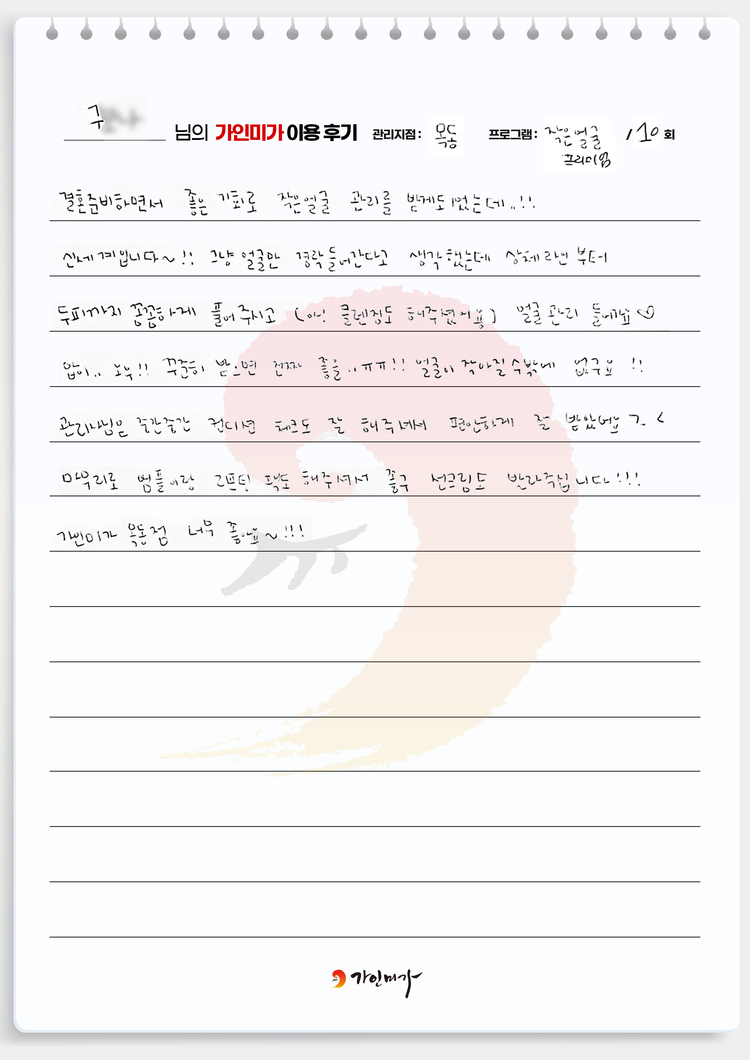 구
님의 가인미가 이용 후기 관리지점 : 목동 프로그램 : 작은얼굴 / 10 회
프리미엄
결혼준비하면서 좋은 기회로 작은얼굴 관리를 받게되었는데..!!
신세계입니다~!! 그냥 얼굴만 경락들어간다고 생각했는데 상체라인부터
두피까지 꼼꼼하게 풀어주시고 (아! 클렌징도 해주셨어용) 얼굴관리 들어가요♡
압이.. 노우!! 꾸준히 받으면 진짜 좋을..ㅠㅠ!! 얼굴이 작아질수밖에 없구요 !!
관리사님은 중간중간 컨디션 체크도 잘 해주셔서 편안하게 잘 받았어요 >.<
마무리로 앰플이랑 리프팅 팩도 해주셔서 좋구 선크림도 발라주십니다!!!
가인미가 목동점 너무 좋아요~!!!
가인미가